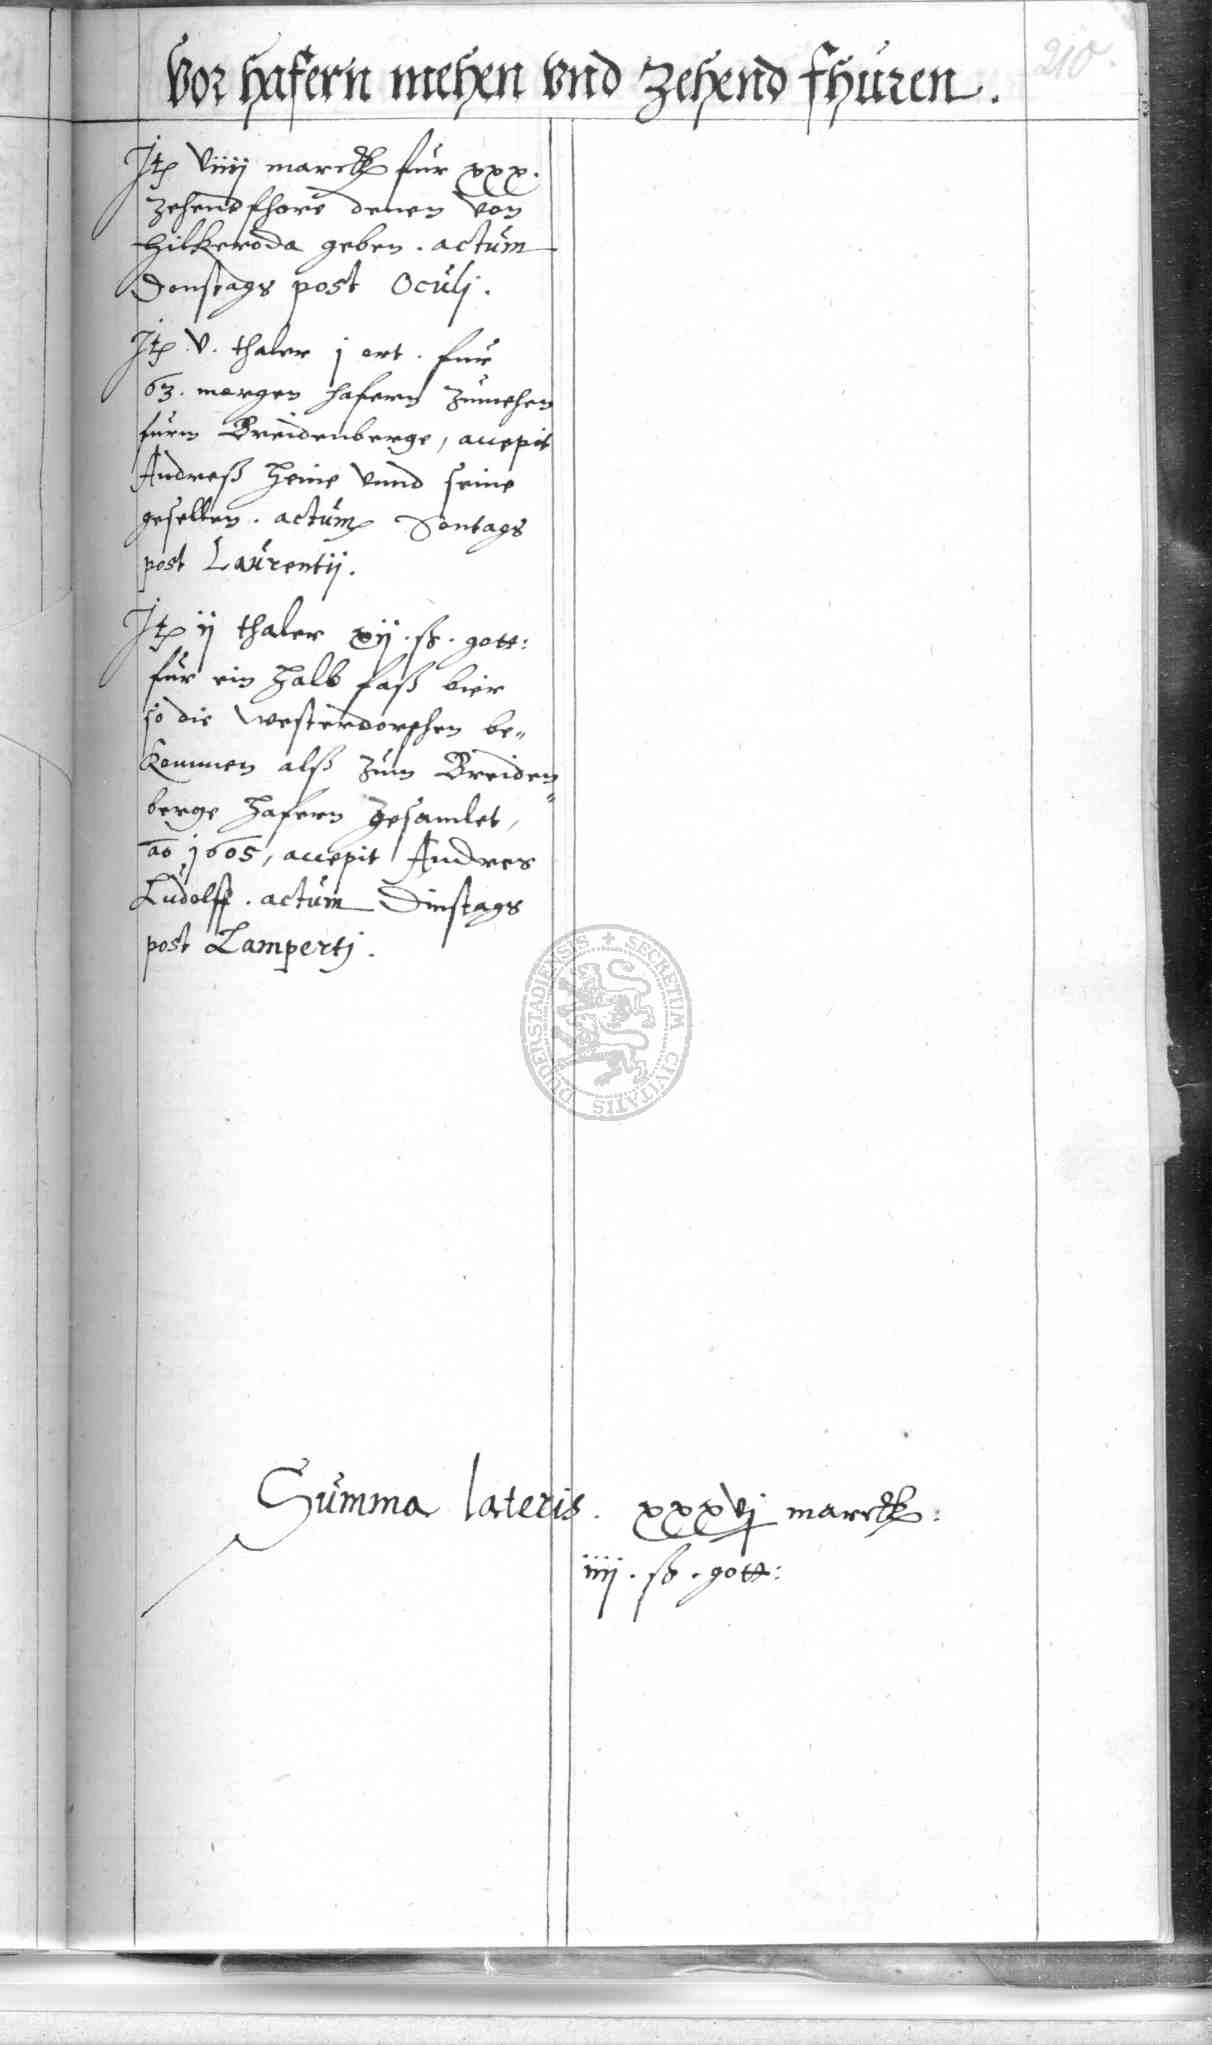 210.
Vor hafern mehen vnd Zehend fhüren.
Jtem viiij marck für xxx.
Zehendfhore denen von
Hilkeroda geben. actum
Donstags post Oculj.
Jtem v. thaler j ort. für
63. morgen hafern zumehen
fürm Breidenberge, accepit
Andreß Heine vnnd seine
gesellen. actum Sontags
post Laurentij.
Jtem ij thaler xij. ß. gott:
für ein halb faß bier
so die Westerdorfhen be-
kommen alß zum Breiden-
berge hafern gesamlet,
ao 1605, accepit Andres
Ludolff. actum Dinstags
post Lampertj.
DUDERSTADIENSIS + SECRETUM CIVITATIS
Summa lateris. xxxvj marck:
iiij. ß. gott: